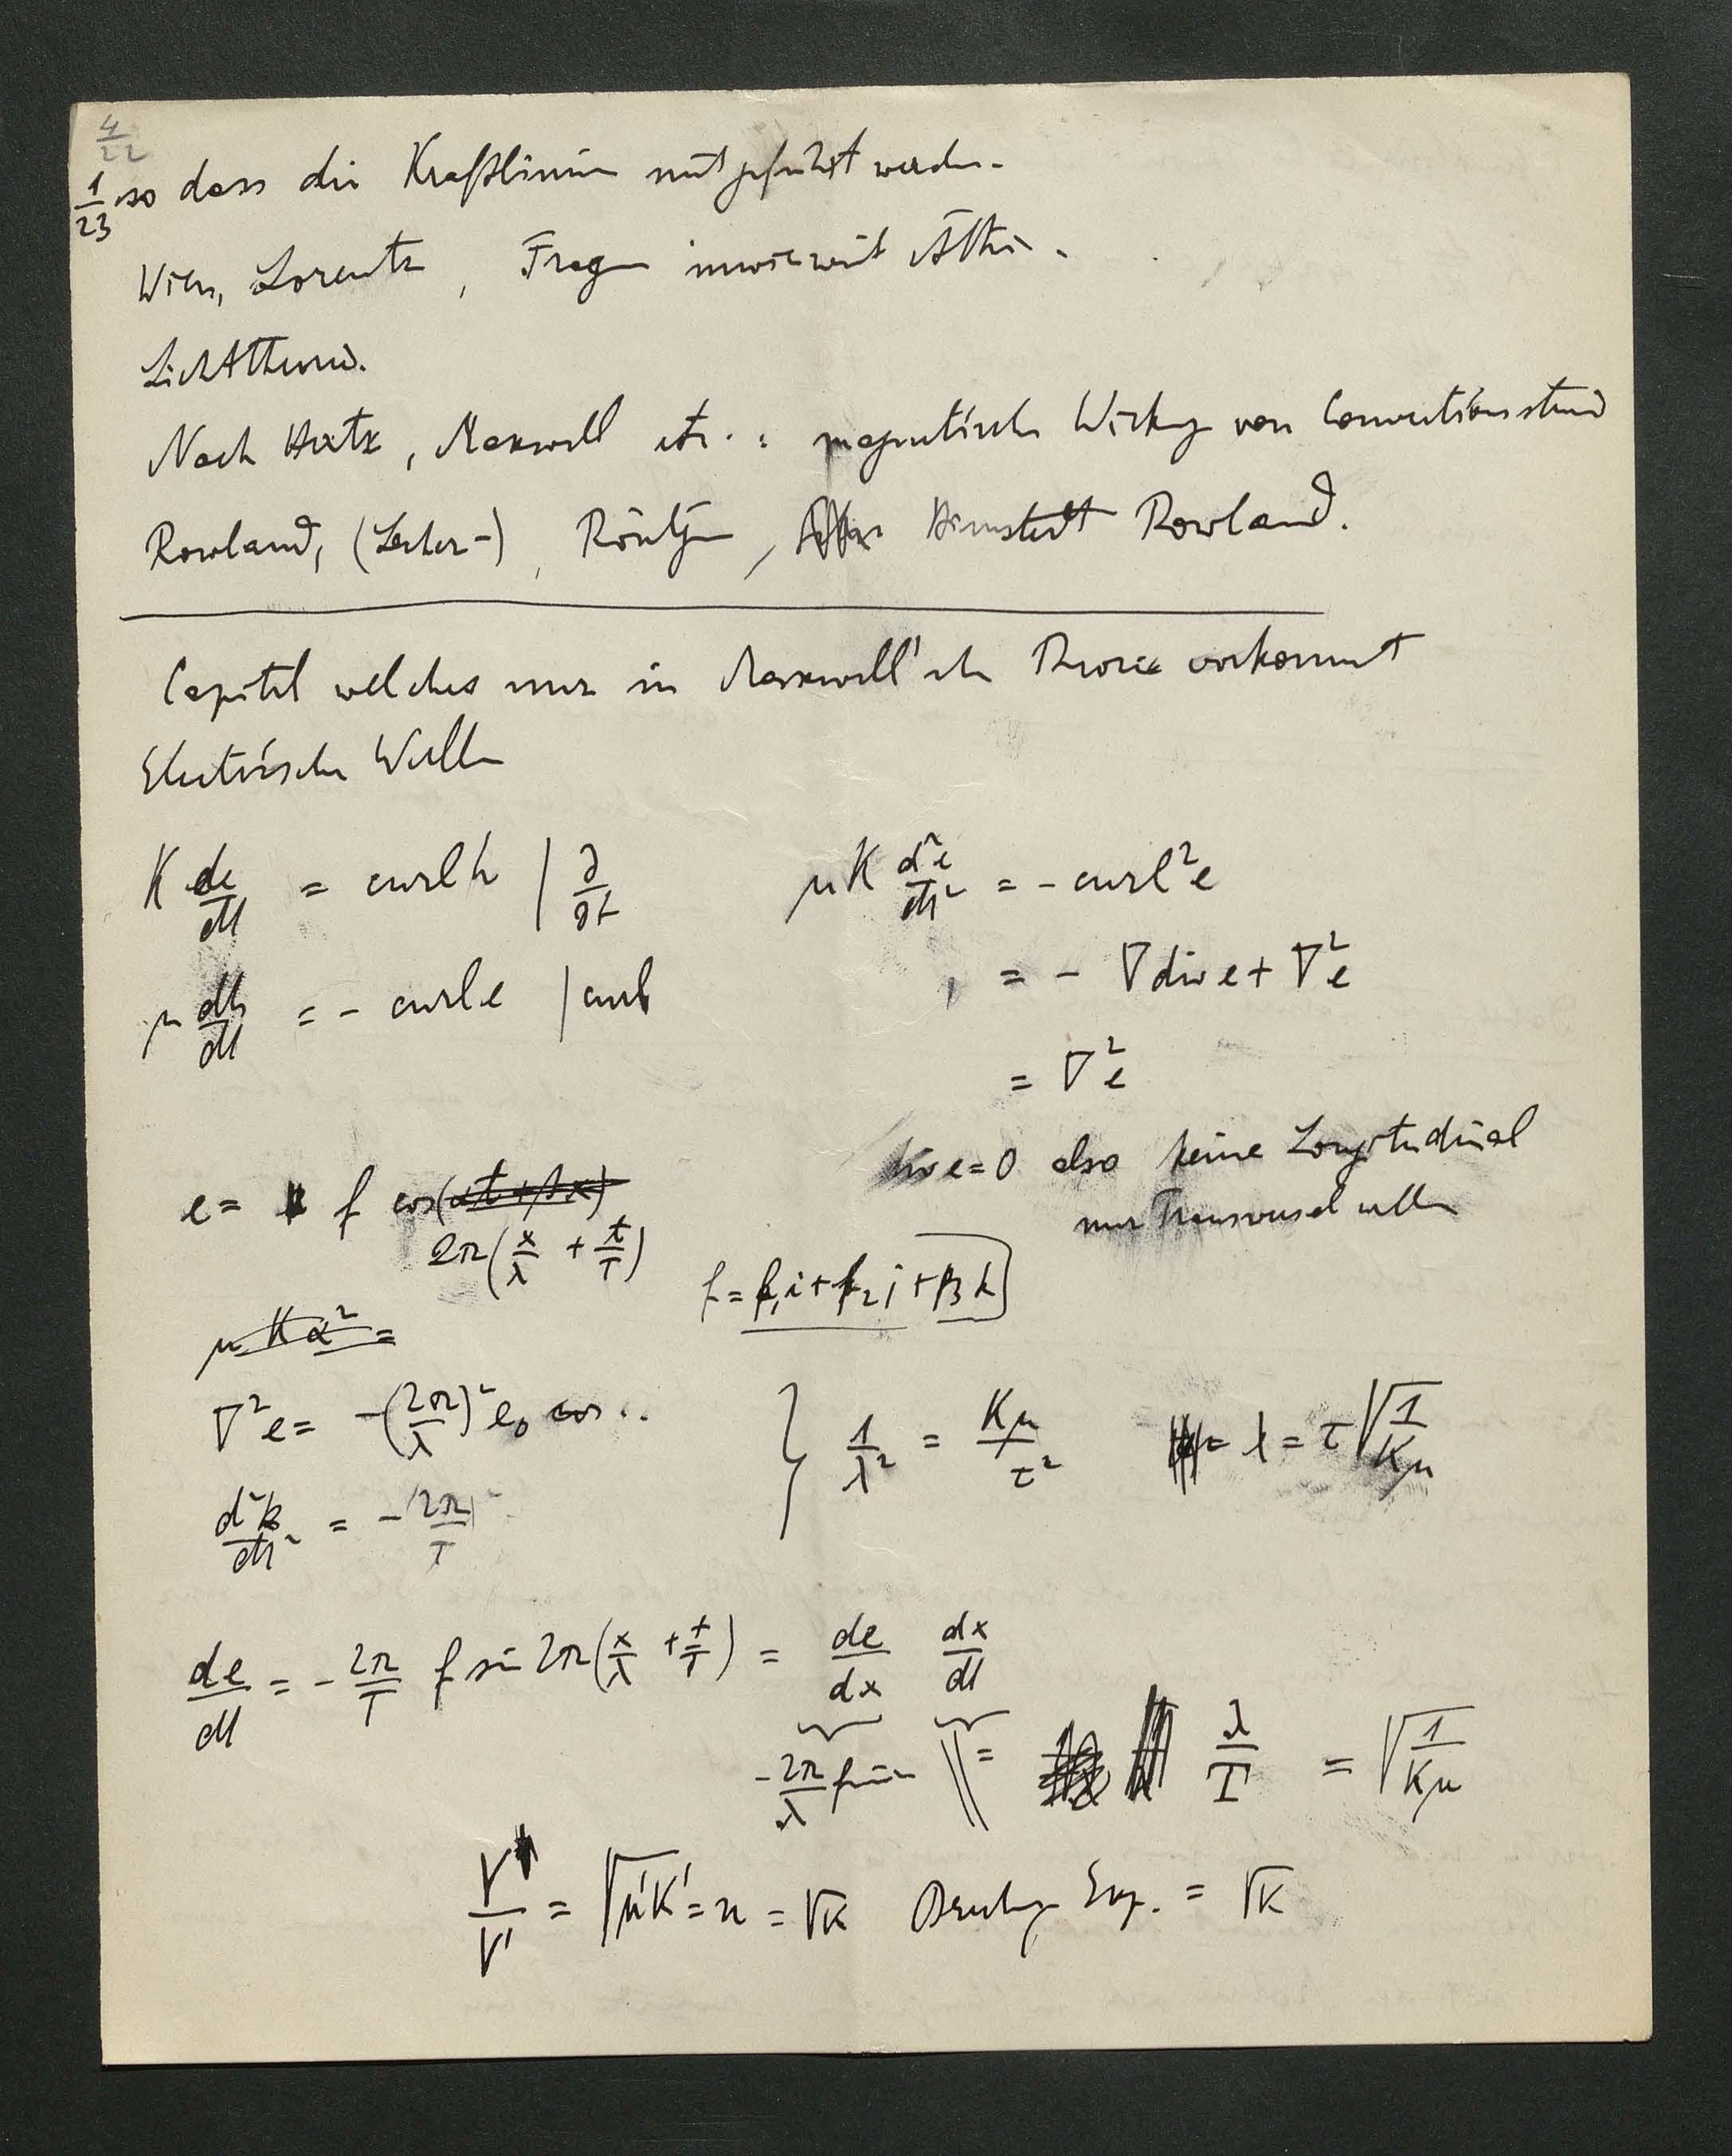 4/22
1/23 so dass die Kraftlinien mitgeführt werden.
Wien, Lorentz, Fragen inwieweit Äther.
Lichttheorie.
Nach Hertz, Maxwell etc.: magnetische Wirkung von Convectionsstrom
Rowland, (Lecher-), Röntgen, Himstedt Rowland.
Capitel welches nur in Maxwell'sche Theorie vorkommt
Electrische Wellen
K de/dt = curl h | ∂/∂t
μK d²e/dt² = - curl²e
μ dh/dt = - curl e | curl
= - ∇ div e + ∇²e
= ∇²e
div e = 0 also keine Longitudinal
nur Transversalwellen
e = f cos(αt + βx)
2π(x/λ + t/T)
f = f₁i + f₂j + f₃k
μKα² =
∇²e = -(2π/λ)² e₀ cos ..
} 1/λ² = Kμ/τ² λ = τ√(1/Kμ)
d²/dt² = -(2π/T)²
de/dt = - 2π/T f sin 2π(x/λ + t/T) = de/dx dx/dt
- 2π/λ f sin = λ/T = √(1/Kμ)
V/V' = √(μ'K') = n = √K Brechungs Exp. = √K